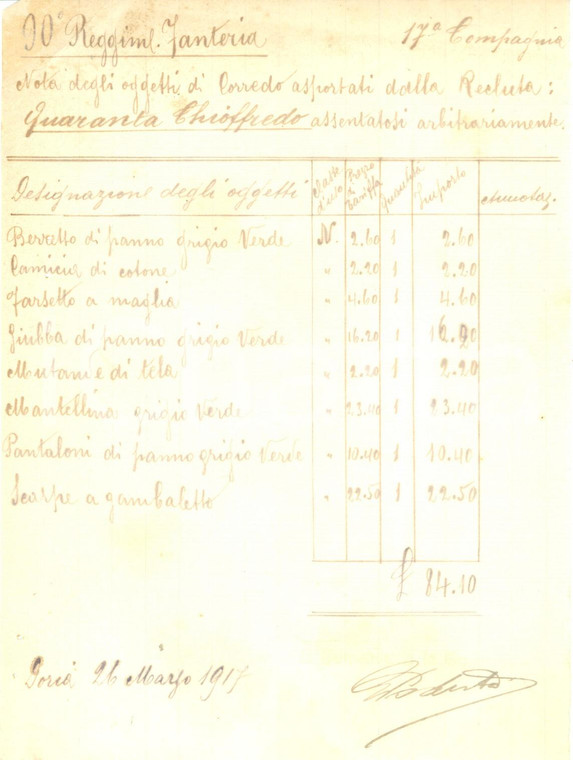 90° Reggim. Fanteria 17ª Compagnia
Nota degli oggetti di Corredo asportati dalla Recluta:
Quaranta Chioffredo assentatosi arbitrariamente.
Designazione degli oggetti Classe d'uso Prezzo di Tariffa Quantità Importo Annotaz.
Berretto di panno grigio Verde N. 2.60 1 2.60
Camicia di cotone " 2.20 1 2.20
Farsetto a maglia " 4.60 1 4.60
Giubba di panno grigio Verde " 16.20 1 16.20
Mutande di tela " 2.20 1 2.20
Mantellina grigio Verde " 23.40 1 23.40
Pantaloni di panno grigio Verde " 10.40 1 10.40
Scarpe a gambaletto " 22.50 1 22.50
£ 84.10
Doria 26 Marzo 1917